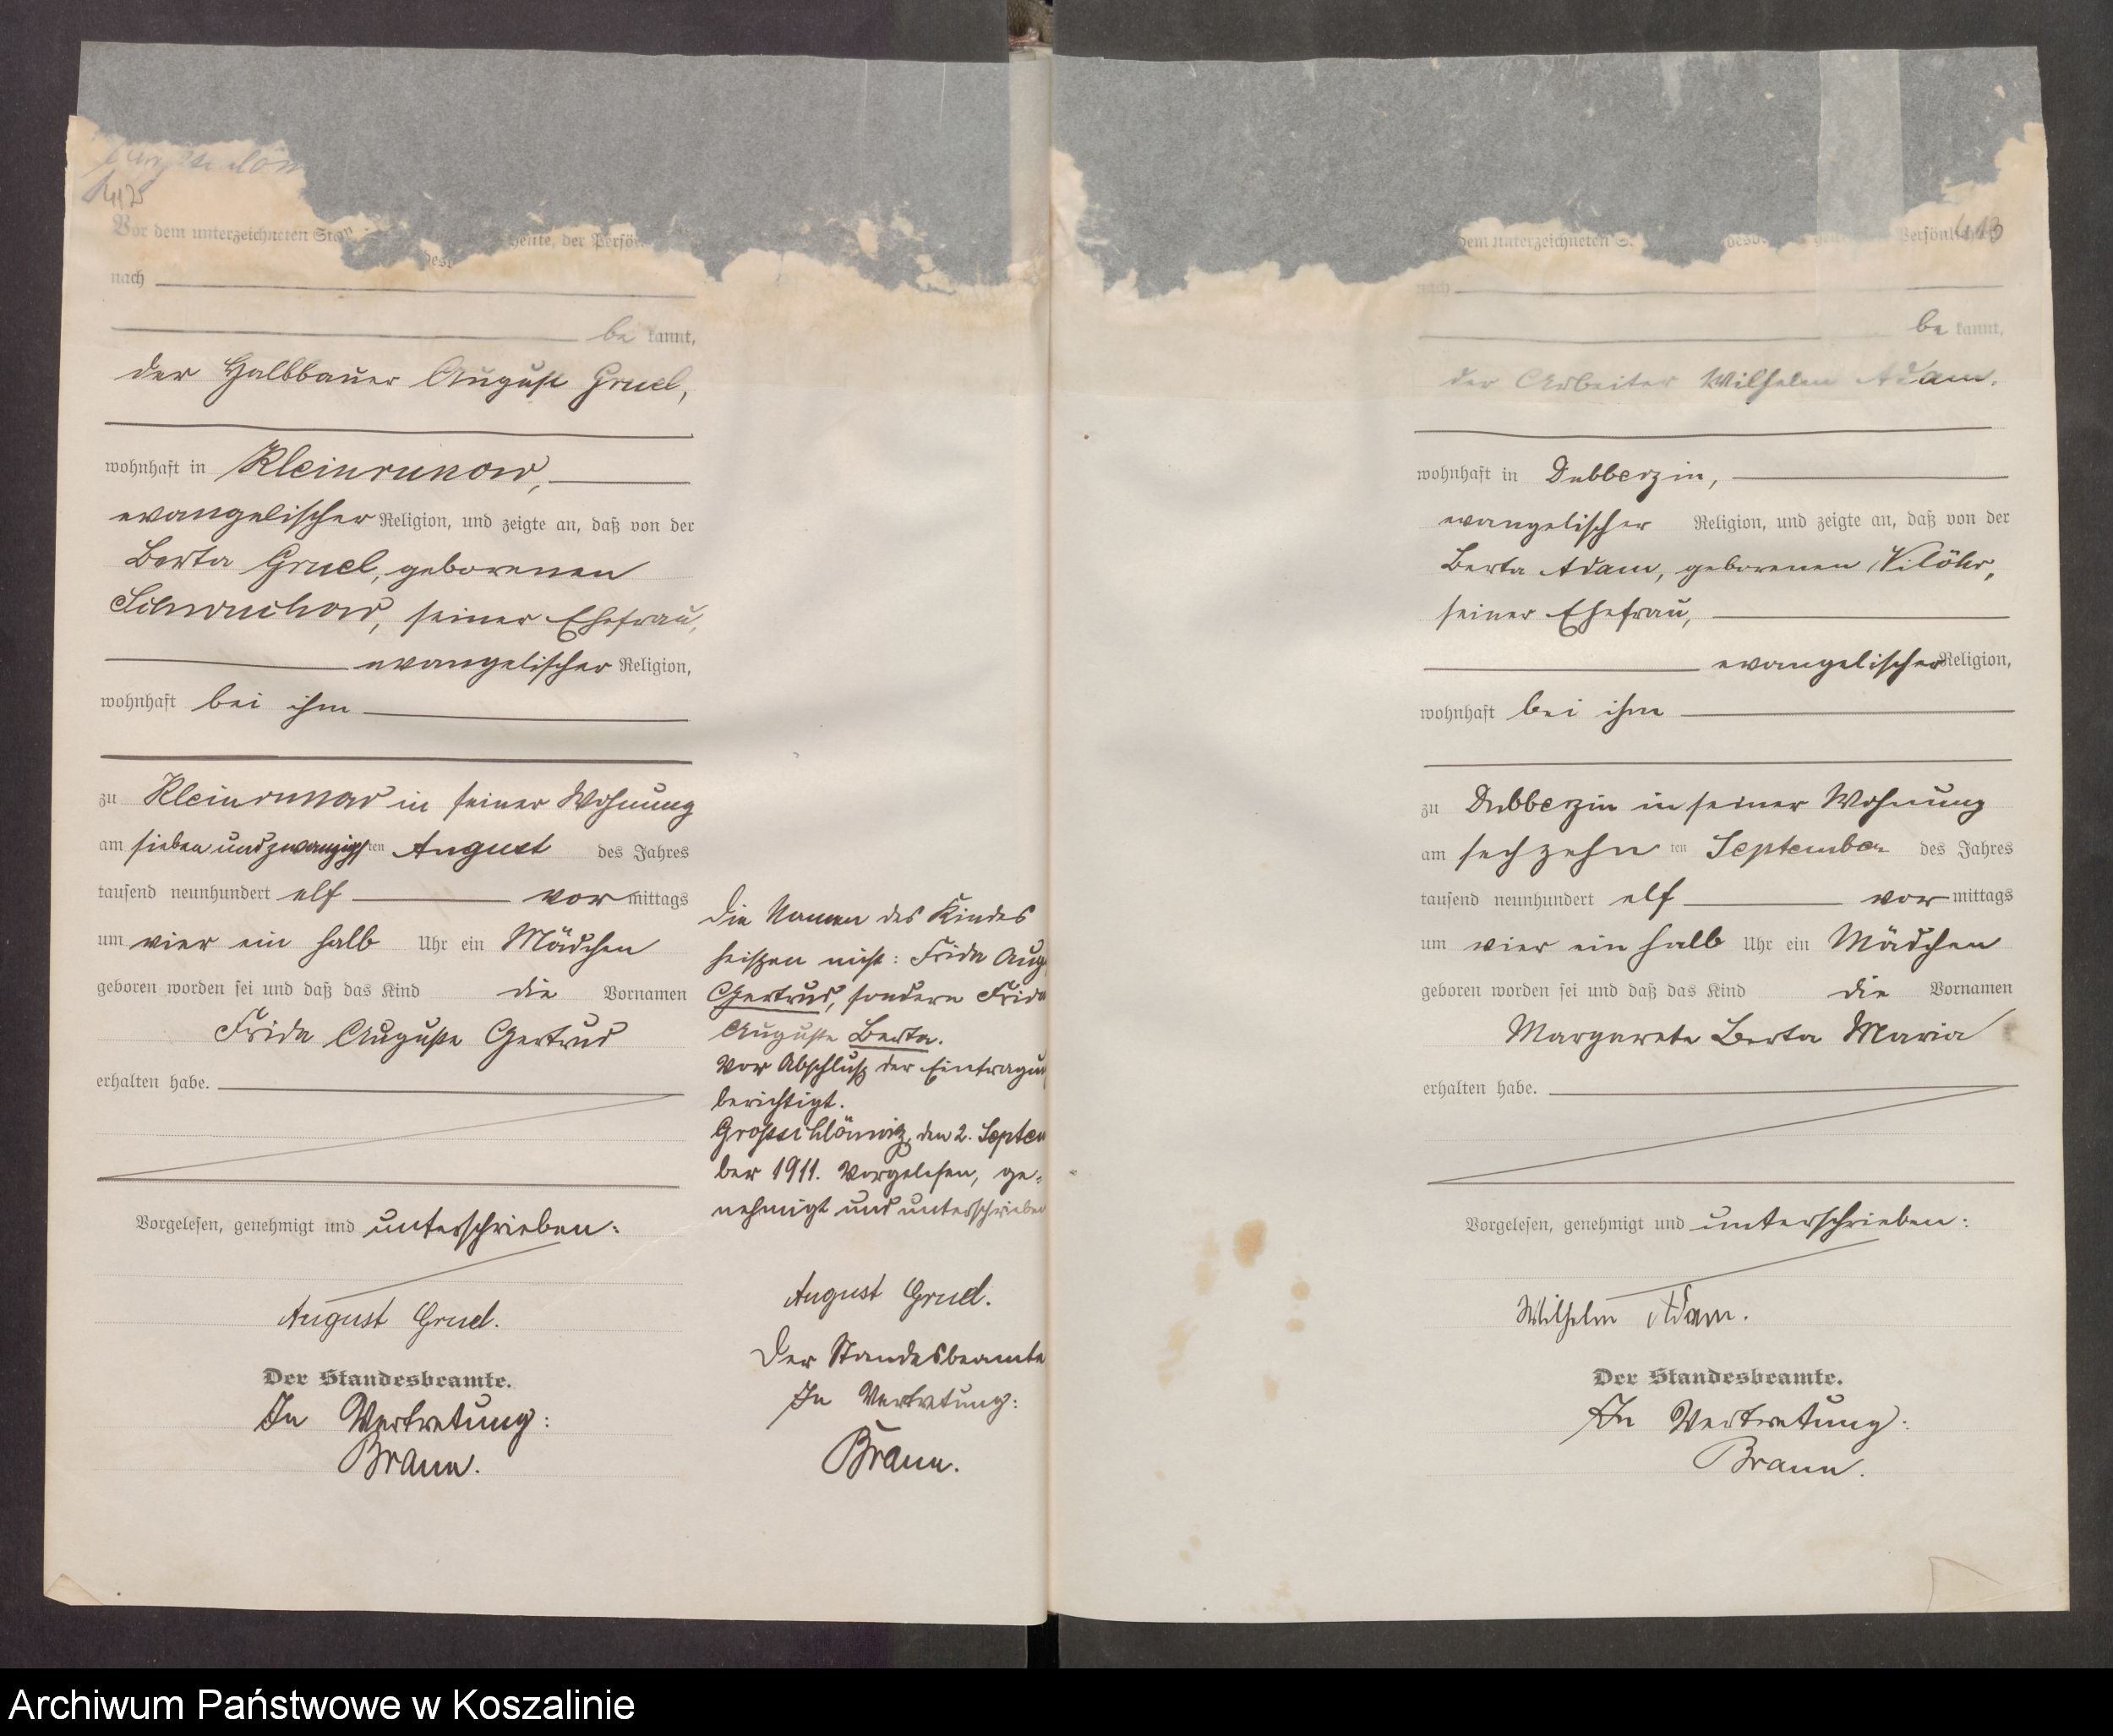 Vor dem unterzeichneten Stan
heute, der Persön
nach
be kannt,
der Halbbauer August Gruel,
wohnhaft in Kleinrunow,
evangelischer Religion, und zeigte an, daß von der
Berta Gruel, geborenen
Schwuchow, seiner Ehefrau,
evangelischer Religion,
wohnhaft bei ihm
zu Kleinrunow in seiner Wohnung
am siebenundzwanzigsten August des Jahres
tausend neunhundert elf vor mittags
um vier ein halb Uhr ein Mädchen
geboren worden sei und daß das Kind die Vornamen
Frida Auguste Gertrud
erhalten habe.
Vorgelesen, genehmigt und unterschrieben:
August Gruel.
Der Standesbeamte.
In Vertretung:
Braun.
Die Namen des Kindes
heißen nicht: Frida Aug
Gertrud, sondern Frida
Auguste Berta.
Vor Abschluß der Eintragun
berichtigt.
Großschlönwitz, den 2. Septem
ber 1911. Vorgelesen, ge-
nehmigt und unterschrieben
August Gruel.
Der Standesbeamte
In Vertretung:
Braun.
413
dem unterzeichneten
Persönlich
nach
be kannt,
der Arbeiter Wilhelm Adam,
wohnhaft in Dubberzin,
evangelischer Religion, und zeigte an, daß von der
Berta Adam, geborenen
seiner Ehefrau,
evangelischer Religion,
wohnhaft bei ihm
zu Dubberzin in seiner Wohnung
am sechzehn ten September des Jahres
tausend neunhundert elf vor mittags
um vier ein halb Uhr ein Mädchen
geboren worden sei und daß das Kind die Vornamen
Margarete Berta Maria
erhalten habe.
Vorgelesen, genehmigt und unterschrieben:
Wilhelm Adam.
Der Standesbeamte.
In Vertretung:
Braun.
Archiwum Państwowe w Koszalinie